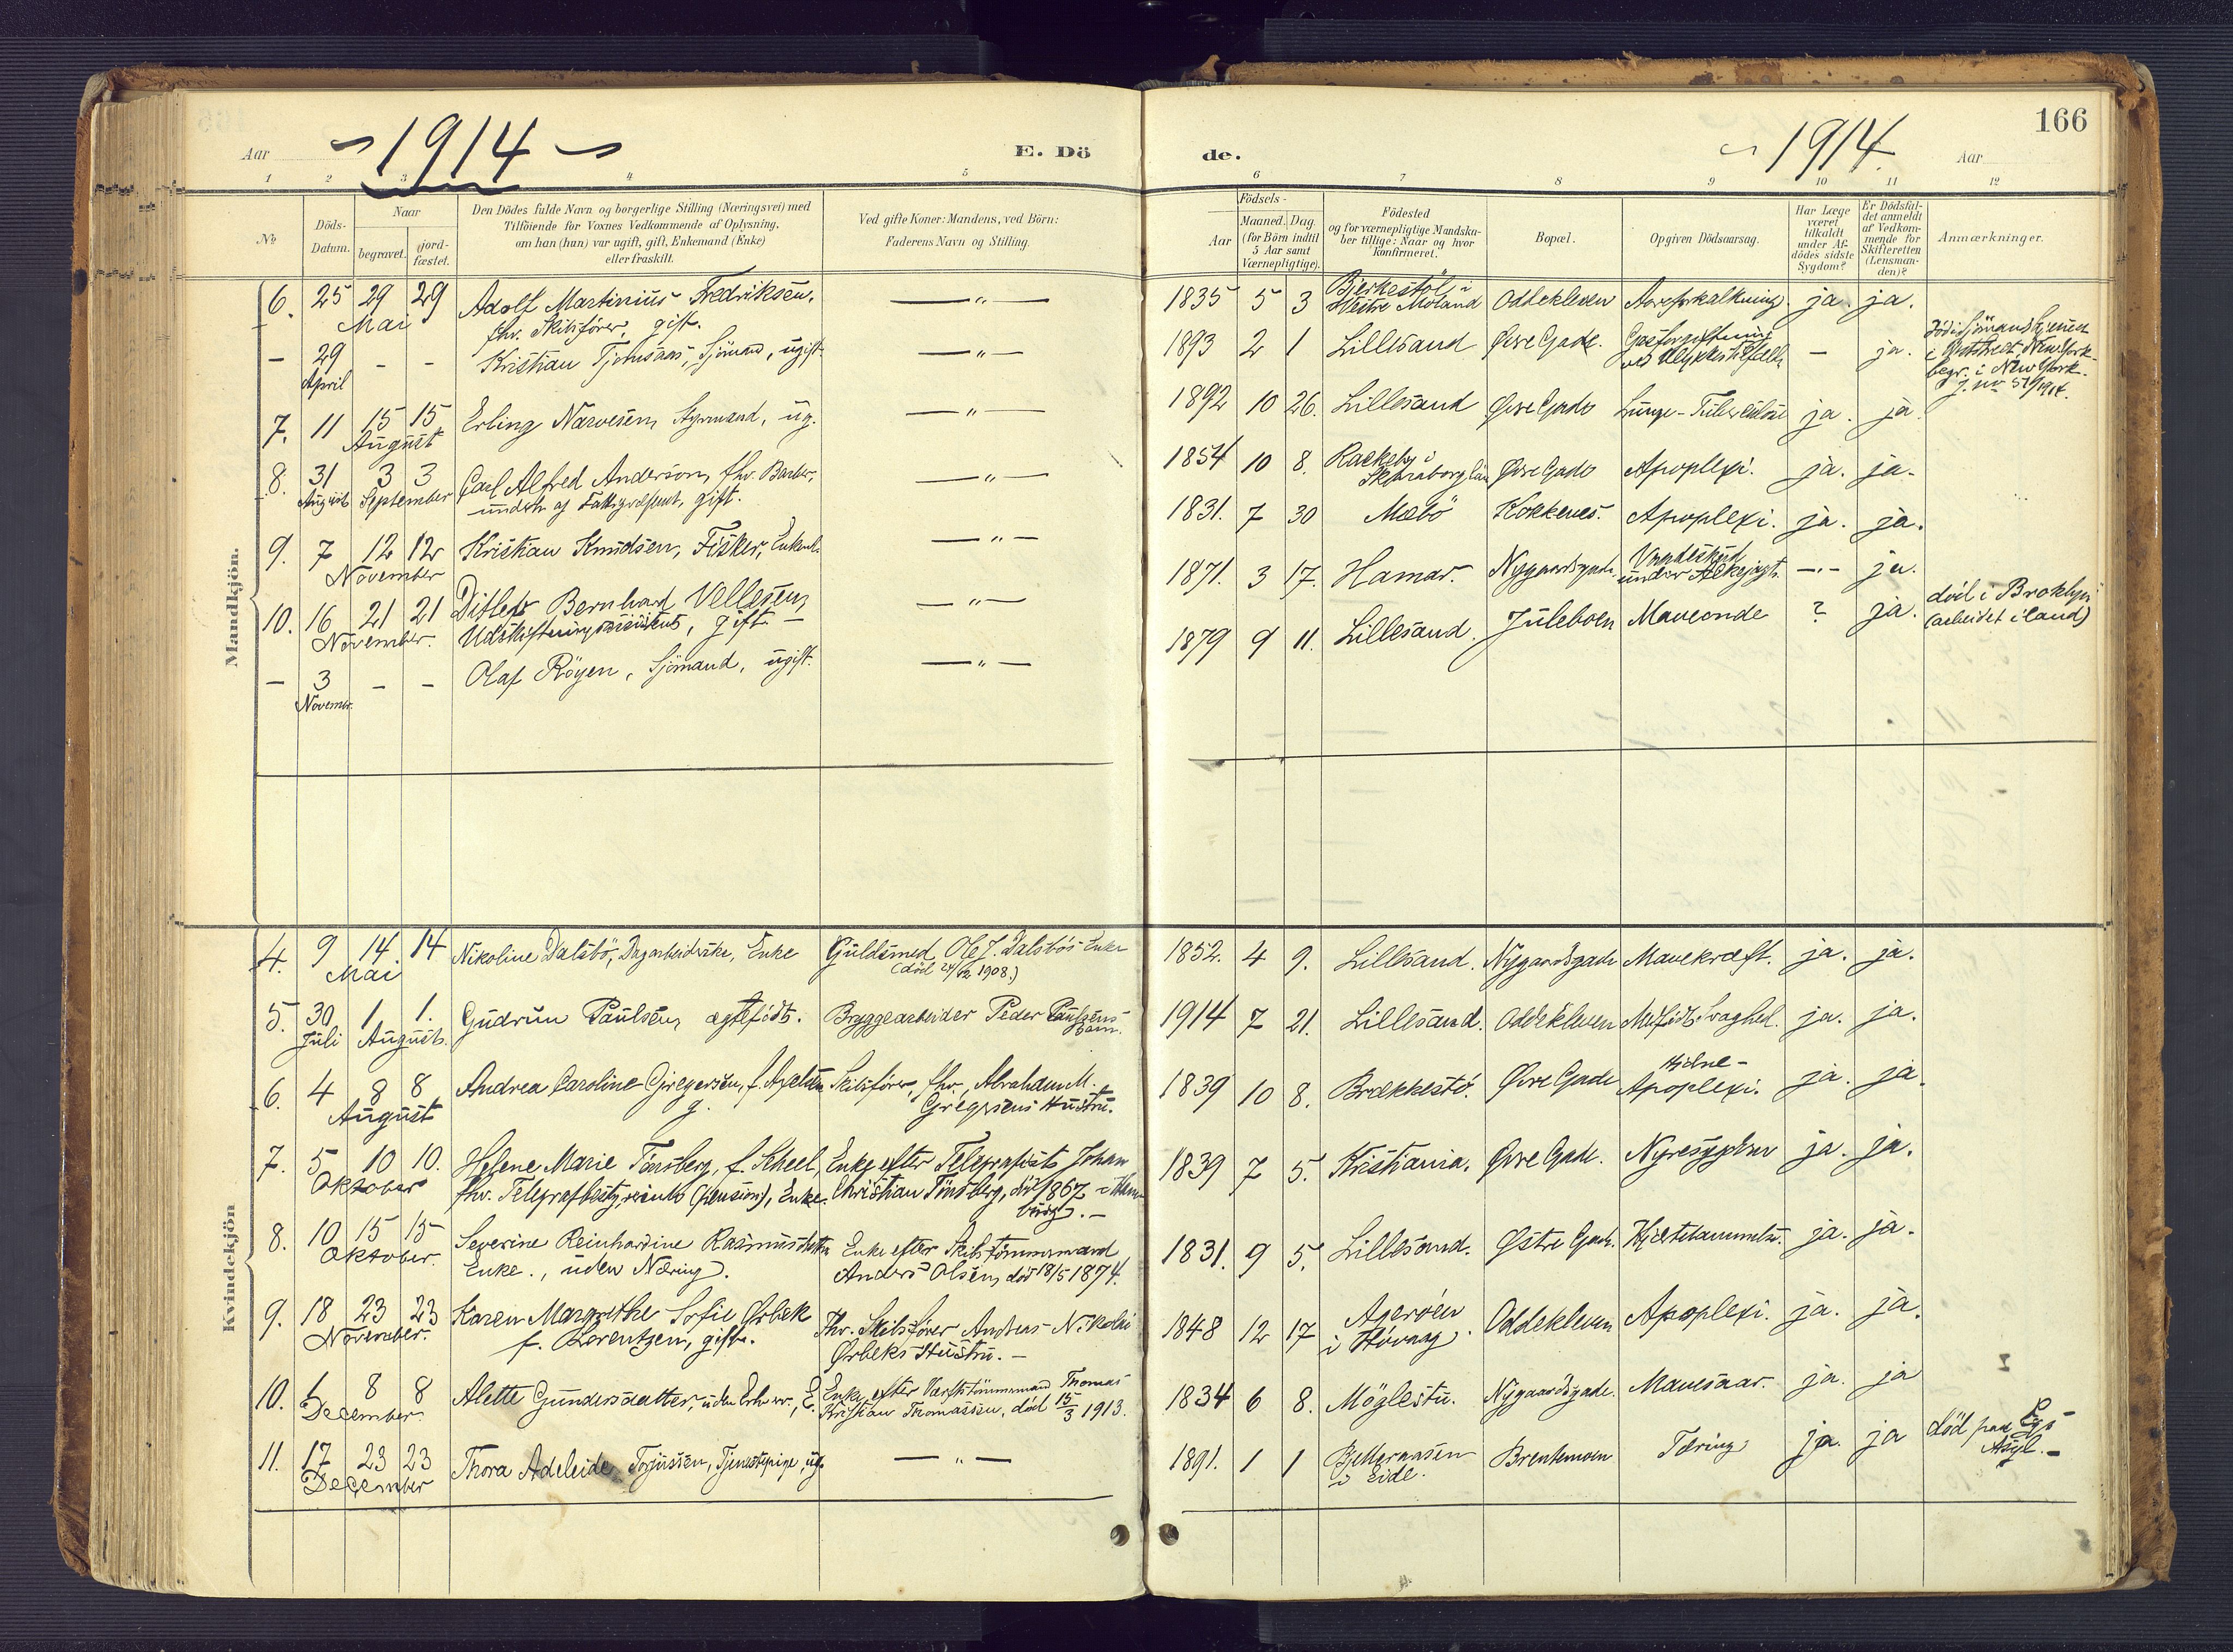 Aar
1914
E. Dö
de.
1914.
Aar
166
1 2 3 4 5 6 7 8 9 10 11 12
No
Döds-
Datum.
Naar
begravet.
jord-
fæstet.
Den Dödes fulde Navn og borgerlige Stilling (Næringsvei) med
Tilföiende for Voxnes Vedkommende af Oplysning,
om han (hun) var ugift, gift, Enkemand (Enke)
eller fraskilt.
Ved gifte Koner: Mandens, ved Börn:
Faderens Navn og Stilling.
Födsels-
Aar
Maaned. Dag.
(for Börn indtil
5 Aar samt
Værnepligtige).
Födested
og for værnepligtige Mandska-
ber tillige: Naar og hvor
konfirmeret.
Bopæl.
Opgiven Dödsaarsag.
Har Læge
været
tilkaldt
under Af-
dödes sidste
Sygdom?
Er Dödsfal-
det anmeldt
af Vedkom-
mende for
Skifteretten
(Lensman-
den)?
Anmærkninger.
Mandkjön.
6. 25 29 29 Adolf Martinius Fredriksen,
Mai
fhv. Skibsförer, gift.
— " —
1835 5 3 Bjerkestöl i
Vestre Moland Oddekleven Aareforkalkning. ja. ja.
— 29 - - Kristian Sjömand, ugift.
April
— " —
1893 2 1 Lillesand Øvre Gade. Gasforgiftning
ved Ulykkestilfælde — ja.
Död i
i New York
begr. i New York.
J. no 519/1914.
7. 11 15 15 Erling Narvesen, Styrmand, ug.
August
— " —
1892 10 26. Lillesand Øvre Gade Lunge-Tuberkulose ja. ja
8. 31 3 3 Carl Alfred Anderson, fhv. Barber,
August September
underst. af Fattigvæsenet, gift.
— " —
1854 10 8. Rackeby i
Skaraborg Län Øvre Gade Apoplexi. ja. ja.
9. 7 12 12 Kristian Knudsen, Fisker, Enkem.
November
— " —
1831. 7 30 Mæbö Kokkenes. Apoplexi. ja. ja.
10. 16 21 21 Ditlef Bernhard Vellesen,
November.
gift. —
— " —
1871. 3 17. Hamar. Nygaardsgade. Vaadeskud
under —.— ja.
— 3 - - Olaf Röyen, Sjömand, ugift.
Novembr.
— " —
1879 9 11. Lillesand. Juleboen Maveonde ? ja. död i Broklyn
(arbeidet i land)
Kvindekjön
4. 9 14. 14 Nikoline Dalsbö, Dagarbeiderske, Enke Guldsmed Ole J. Dalsbös Enke
Mai
(död 24/12 1908.)
1852. 4 9. Lillesand. Nygaardsgade Mavekræft. ja. ja.
5. 30 1 1. Gudrun Paulsen, ægtefödt. Bryggearbeider Peder Paulsens
Juli August. Barn.
1914 7 21. Lillesand. Oddekleven Medfödt Svaghed. ja. ja.
6. 4 8 8 Andrea Caroline Gregersen, f. Axelsen Skibsförer, fhv., Abraham M.
August g. Gregersens Hustru.
1839 10 8. Brækkestö. Øvre Gade Hjerne-
Apoplexi. ja. ja.
7. 5 10 10. Helene Marie Tönsberg, f. Scheel, Enke efter Telegrafist Johan
Oktober
fhv. Telegrafbestyrerinde (pension), Enke. Christian Tönsberg, död 1867 i Ham-
burg. —
1839 7 5. Kristiania. Øvre Gade. Nyresygdom ja. ja.
8. 10 15 15 Severine Reinhardine Rasmusdatter Enke efter Skibstömmermand
Oktober.
Enke., uden Næring. Anders Olsen, död 18/5 1874.
1831. 9 5. Lillesand. Østre Gade. Hjertelammelse. ja. ja.
9. 18 23 23 Karen Margrethe Sofie Ørbek Fhv. Skibsförer Andreas Nikolai
November.
f. Lorentzen, gift. Ørbeks Hustru. —
1848 12 17 Ageröen
i Hövaag. Oddekleven Apoplexi. ja. ja.
10. 1 8 8 Alette Gundersdatter, uden Erhverv., E. Enke efter Værftstömmermand Thomas
December.
Kristian Thomassen, död 15/3 1913.
1834 6 8. Möglestu. Nygaardsgade. Mavesaar. ja. ja
11. 17 23 23 Thora Adeleide Torjussen, Tjenestepige, ug. — " —
December
1891. 1 1
i Eide. Brentemoen Tæring ja. ja död paa Egs
Asyl. —